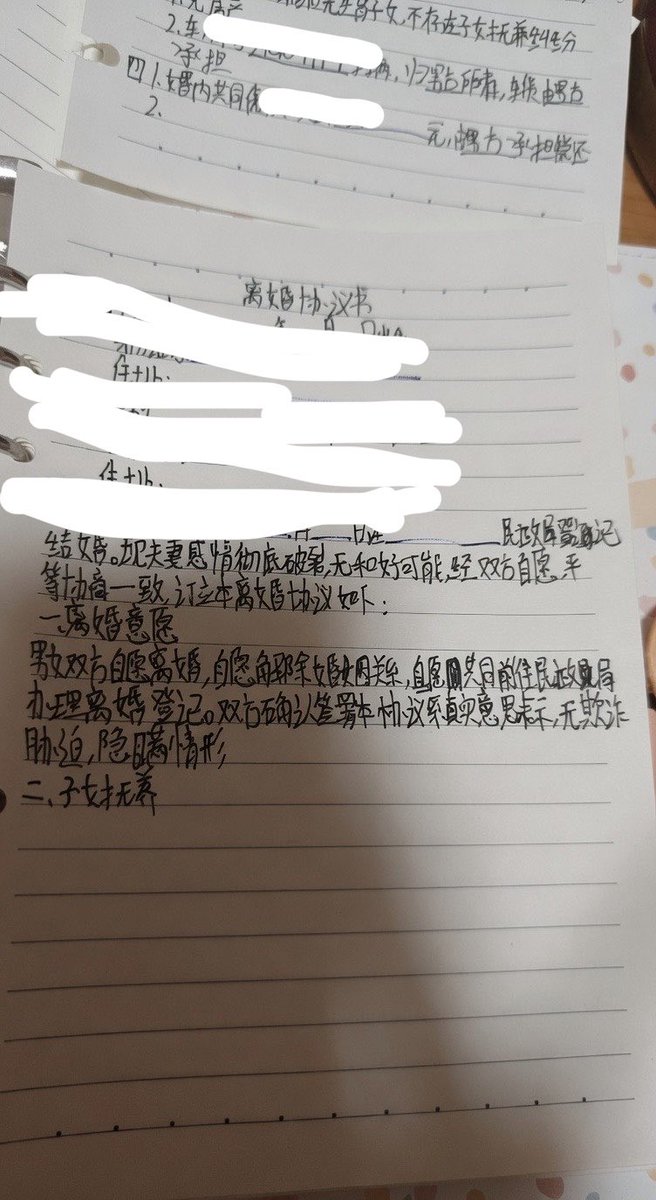 生育子女,不存在子女抚养纠纷
2.车
承担 归男方所有,车贷由男方
四1.婚内共同债
2. 元,由男方承担偿还
离婚协议书
住址:
住址:
民政局登记
结婚。现夫妻感情彻底破裂,无和好可能,经双方自愿、平
等协商一致,订立本离婚协议如下:
一.离婚意愿
男女双方自愿离婚,自愿解除婚姻关系,自愿共同前往民政局
办理离婚登记。双方确认签署本协议系真实意思表示,无欺诈
胁迫,隐瞒情形,
二、子女抚养